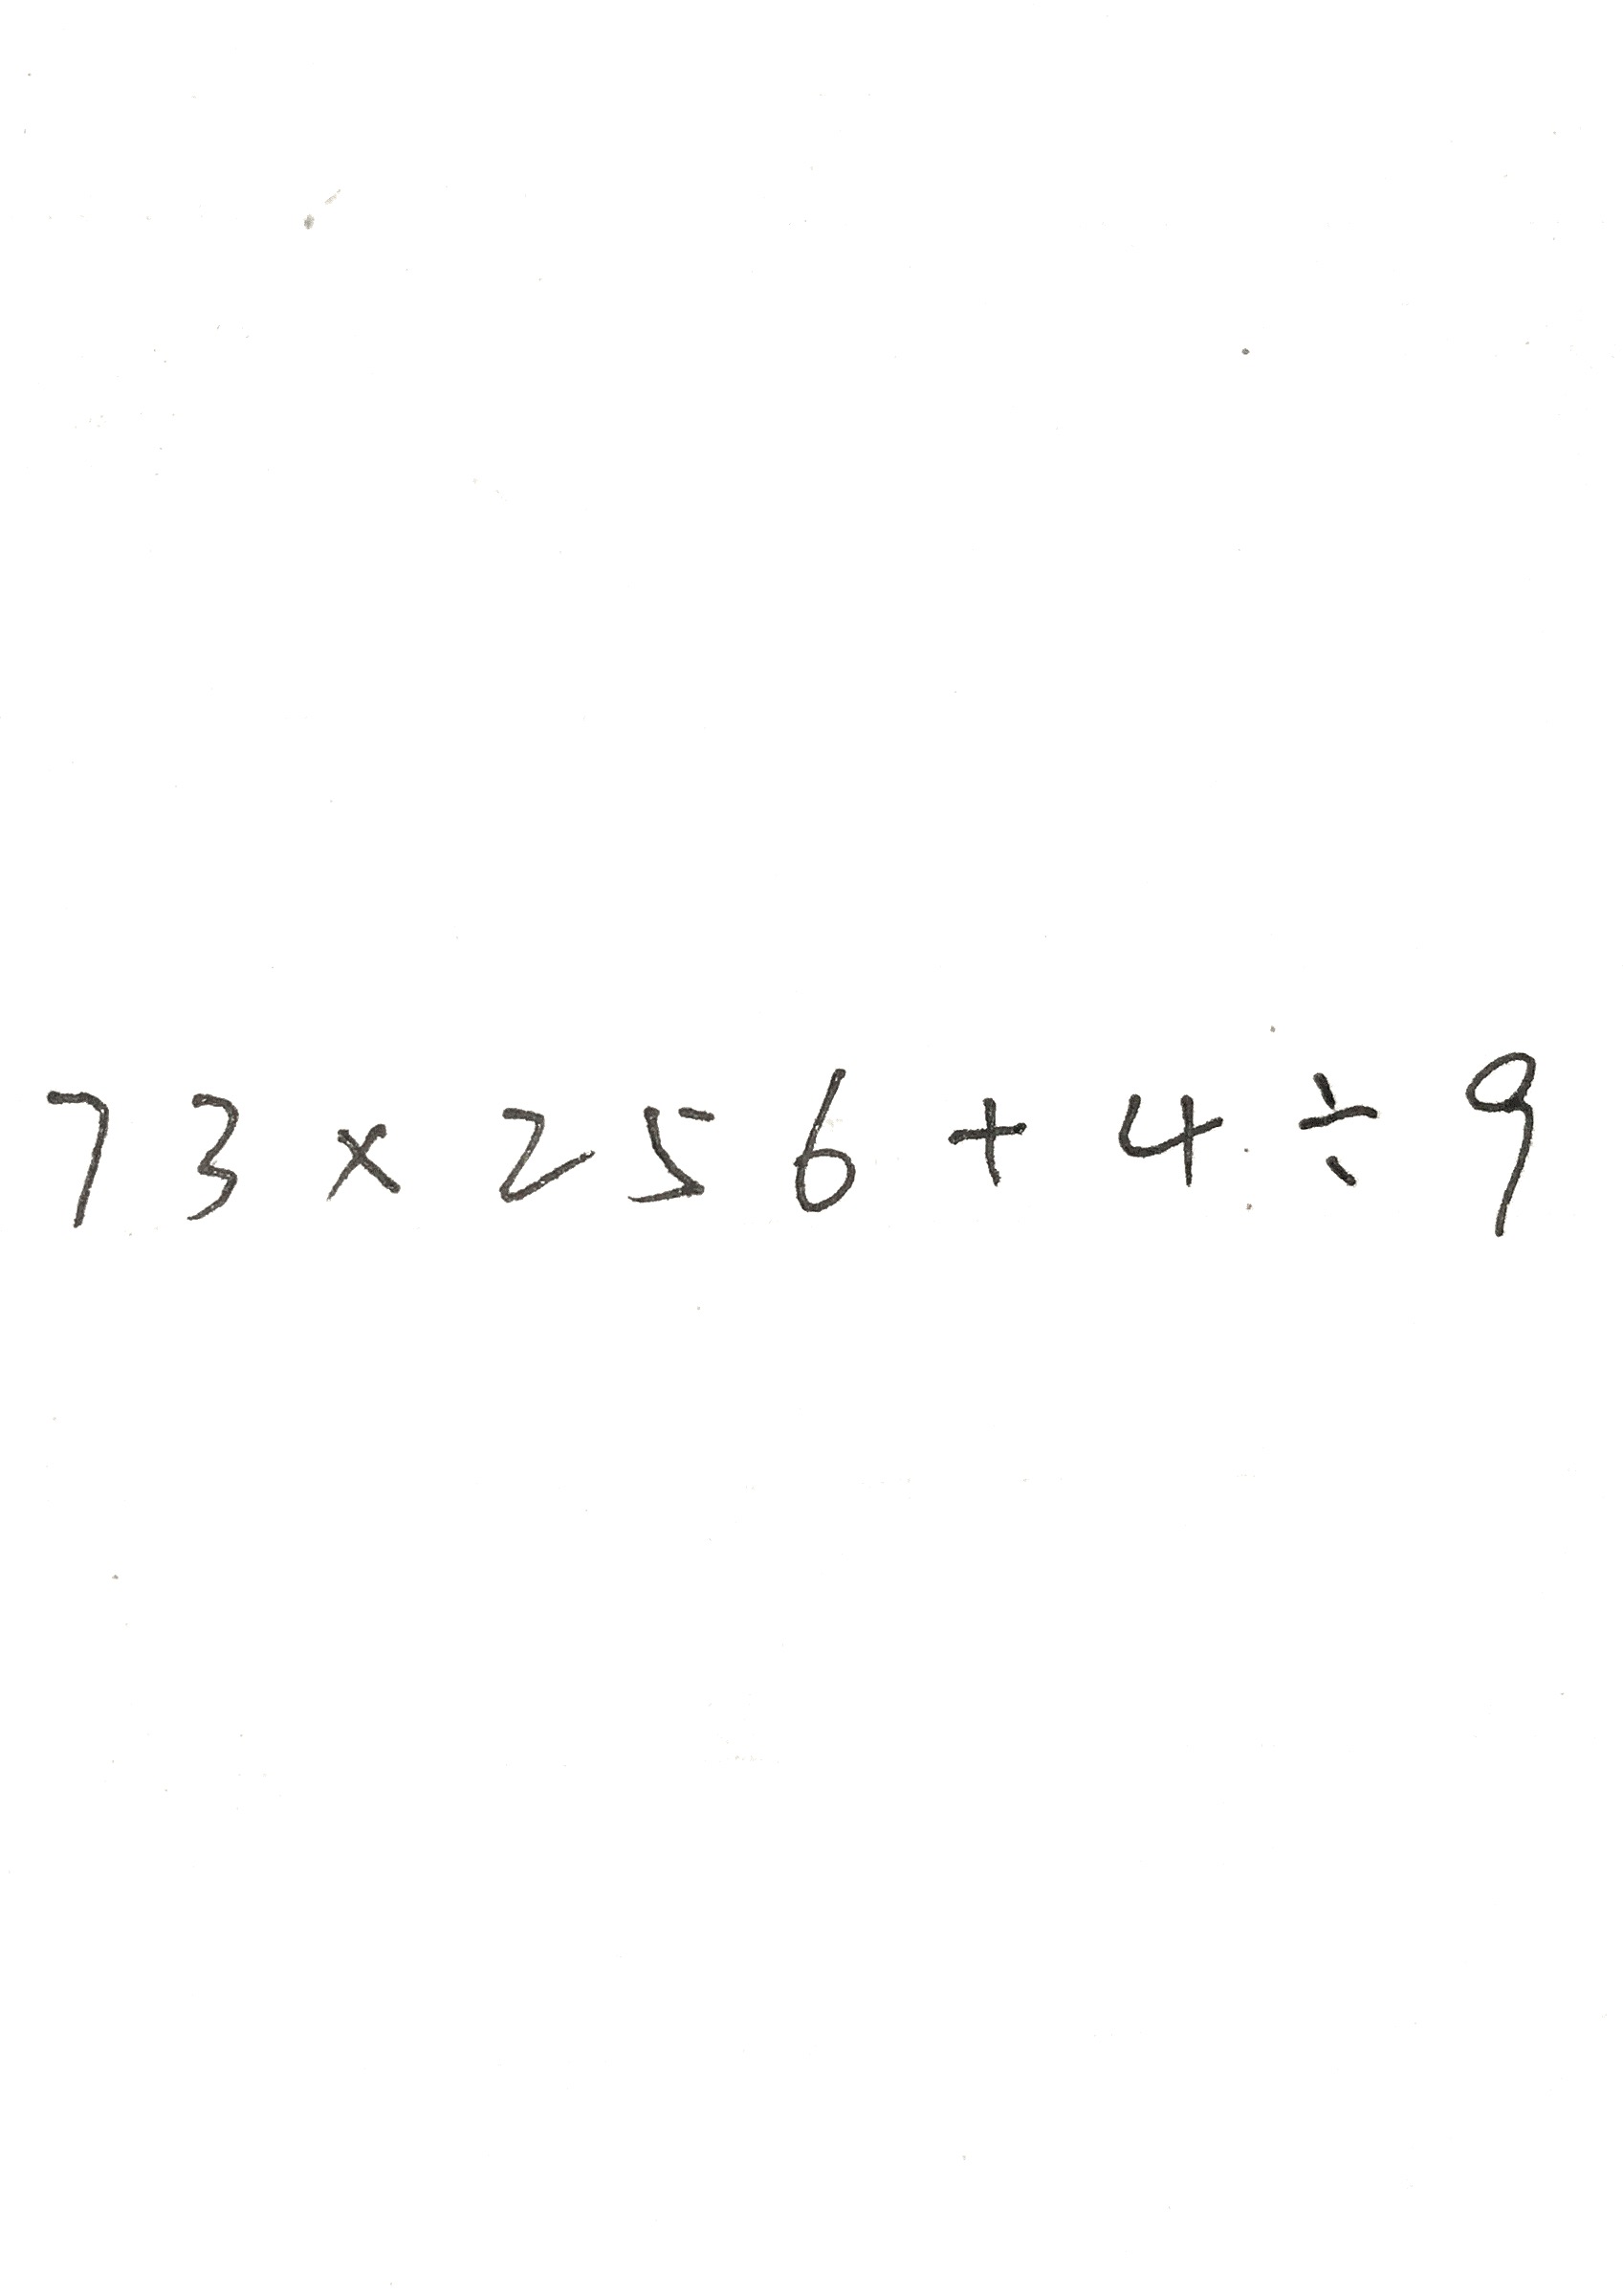 73×256+4÷9